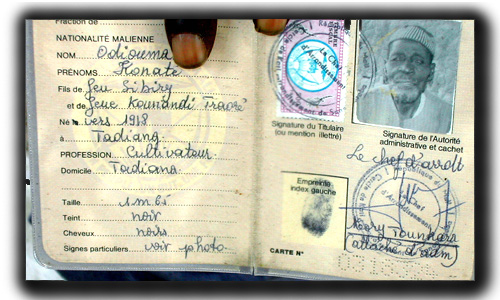 Fraction de
NATIONALITÉ MALIENNE
NOM Odiouma
PRÉNOMS Konaté
Fils de feu Sibiry
et de feue Koumandi Traoré
Né vers 1918
à Tadiana
PROFESSION Cultivateur
Domicile Tadiana
Taille 1 m 65
Teint noir
Cheveux noirs
Signes particuliers voir photo
Signature du Titulaire
(ou mention illettré)
Empreinte
index gauche
CARTE N°
Signature de l'Autorité
administrative et cachet
Le chef d'arrdt
Le Chef
d'Arrondissement
Tounkara
(attaché d'adm)